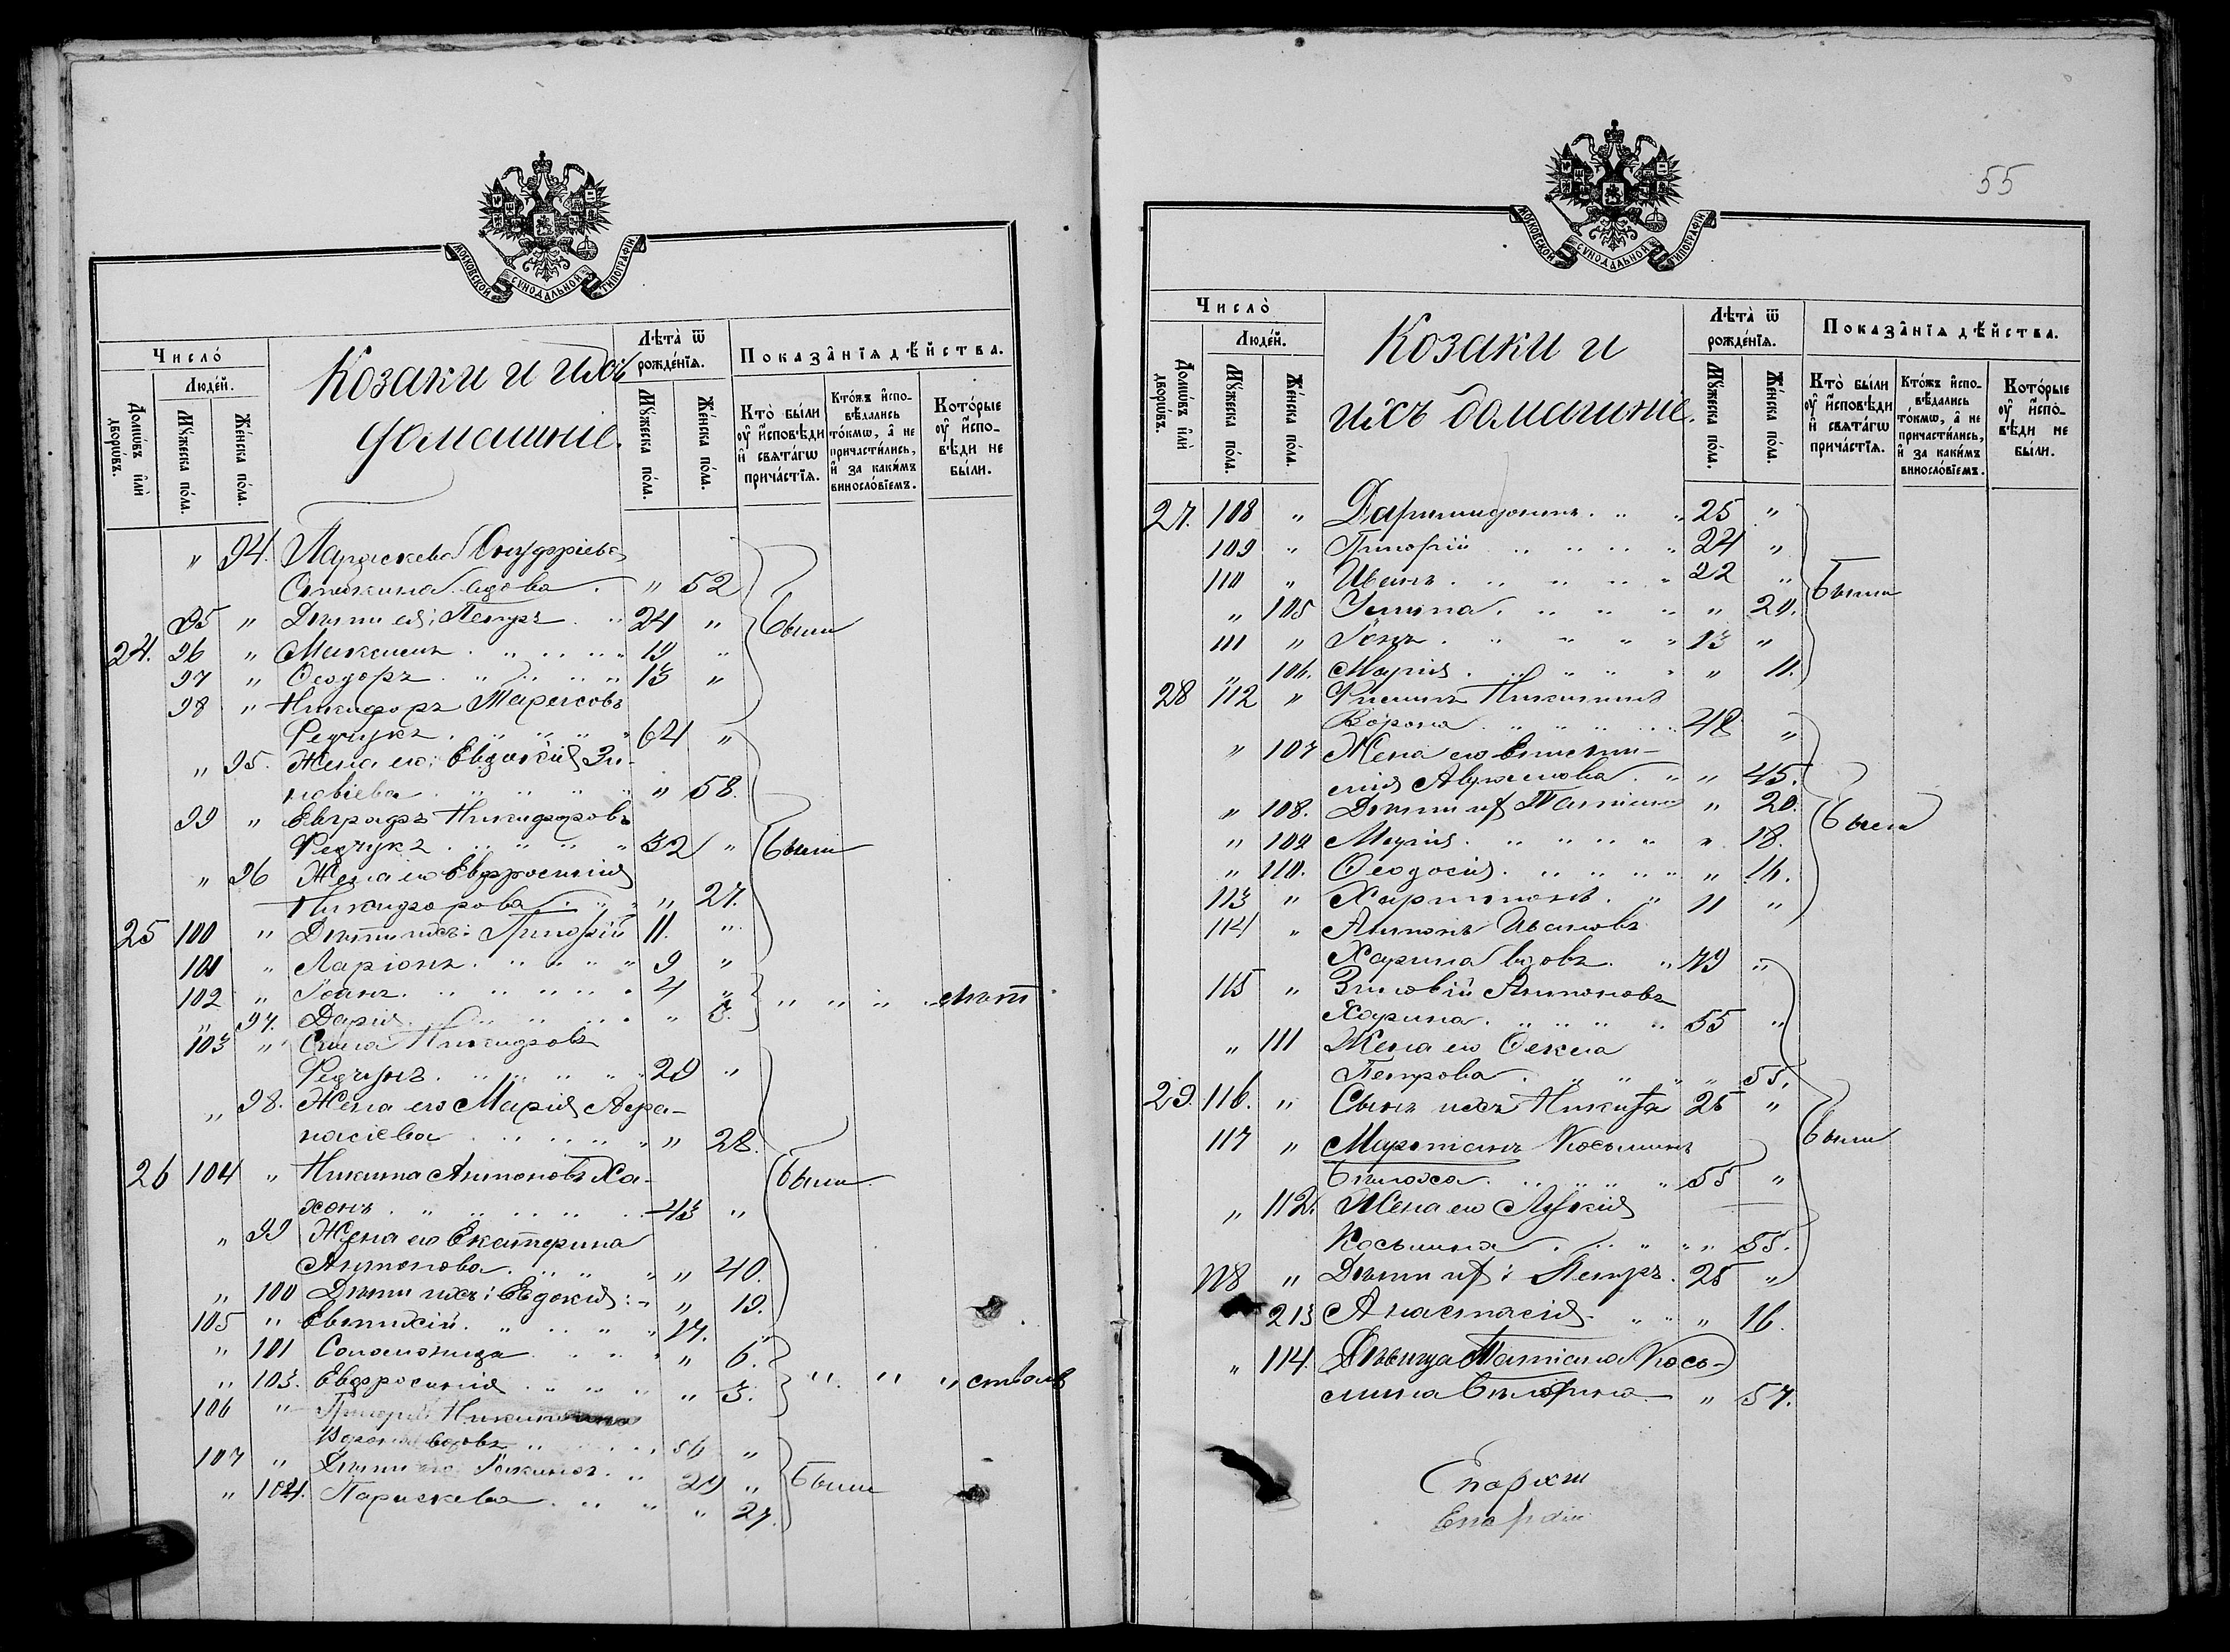 МОСКОВСКОЙ СѴНОДАЛЬНОЙ ТИПОГРАФІИ.
Число̀
Люде́й.
Домѡ́въ и҆лѝ дворѡ́въ.
Мꙋ́жеска по́ла.
Же́нска по́ла.
Козаки и ихъ
домашніе.
Лѣта̀ ѿ рожде́нїѧ.
Мꙋ́жеска по́ла.
Же́нска по́ла.
Показа̂нїѧ дѣ́йства.
Кто̀ бы́ли ᲂу҆ и҆сповѣ́ди и҆ свѧта́гѡ прича́стїѧ.
Кто́жъ и҆сповѣ́дались то́кмѡ, а҆ не причасти́лись, и҆ за каки́мъ виносло́вїемъ.
Кото́рые ᲂу҆ и҆спо́вѣди не бы́ли.
" 94. Параскева Онуфріева
вдова . " 52
95 " Дѣти ея: Петръ . " 24 "
24. 96 " Максимъ . " " " 19 "
97 " Ѳеодоръ . " " " 13 "
98 " Никифоръ Марковъ
Редчукъ . " " " 64 "
" 95. Жена его: Евдокія Зи-
новіева . " " " " 58.
99 " Евграфъ Никифоровъ
Редчукъ " " " " 32 "
" 96 Жена его Евфросинія
Никифорова . " " 27.
25 100 " Дѣти ихъ: Григорій 11. "
101 " Ларіонъ . " " " " 9 "
102 " Іоанъ . " " " " 4 "
" 97. Дарія . " " " " 3.
103 " Сила Никифровъ
Редчукъ . " " " " 29 "
" 98. Жена его Марія Афа-
насіева . " " " " 28.
26 104 " Никита Антоновъ Ха-
хонъ . " " " " 43 "
" 99 Жена его Екатерина
Антонова . " " " " 40.
" 100 Дѣти ихъ: Евдокія : " 19.
105 " Евтихій . " " " 17.
" 101 Соломонида . " " " 6.
" 103. Евфросинія . " " " 3.
106 " Григорій Никитинъ
вдовъ " " " 56 "
107 " Дѣти его " 29 "
" 104. Параскева . " " " 27.
Были
Были
" " " лѣт
Были
" " " ствомъ
Были
55
МОСКОВСКОЙ СѴНОДАЛЬНОЙ ТИПОГРАФІИ.
Число̀
Люде́й.
Домѡ́въ и҆лѝ дворѡ́въ.
Мꙋ́жеска по́ла.
Же́нска по́ла.
Козаки и
ихъ домашніе.
Лѣта̀ ѿ рожде́нїѧ.
Мꙋ́жеска по́ла.
Же́нска по́ла.
Показа̂нїѧ дѣ́йства.
Кто̀ бы́ли ᲂу҆ и҆сповѣ́ди и҆ свѧта́гѡ прича́стїѧ.
Кто́жъ и҆сповѣ́дались то́кмѡ, а҆ не причасти́лись, и҆ за каки́мъ виносло́вїемъ.
Кото́рые ᲂу҆ и҆спо́вѣди не бы́ли.
27. 108 " Даримидонтъ . " " 25 "
109 " Григорій " " " " 24 "
110 " Иванъ . " " " " 22 "
" 105 . " " " " 20.
111 " . " " " " 13 "
" 106. Марія . " " " " 11.
28 112 " Никитинъ
Ворона . " " " 48 "
" 107 Жена его
" " 45.
" 108. Дѣти их Татіана " 20.
" 109 Марія . " " " " 18.
" 110. Ѳеодосія . " " " " 16.
113 " Харитонъ . " 11 "
114 " Антонъ Ивановъ
Харина вдовъ . " 79 "
115 " Зиновій Антоновъ
Харина . " " " " 55 "
" 111 Жена его Ѳекла
Петрова . " " " " 55.
29. 116. " Сынъ ихъ Никита 25 "
117 " Мартіанъ Косьминъ
Бѣлоха . " " " " 55 "
" 112. Жена его Лукія
Косьмина . " " " " 55.
118 " Дѣти их: Петръ . 25 "
213 Анастасія . " " " 16.
" 114. Дѣвица Татіана Кось-
мина " 57.
Были
Были
Были